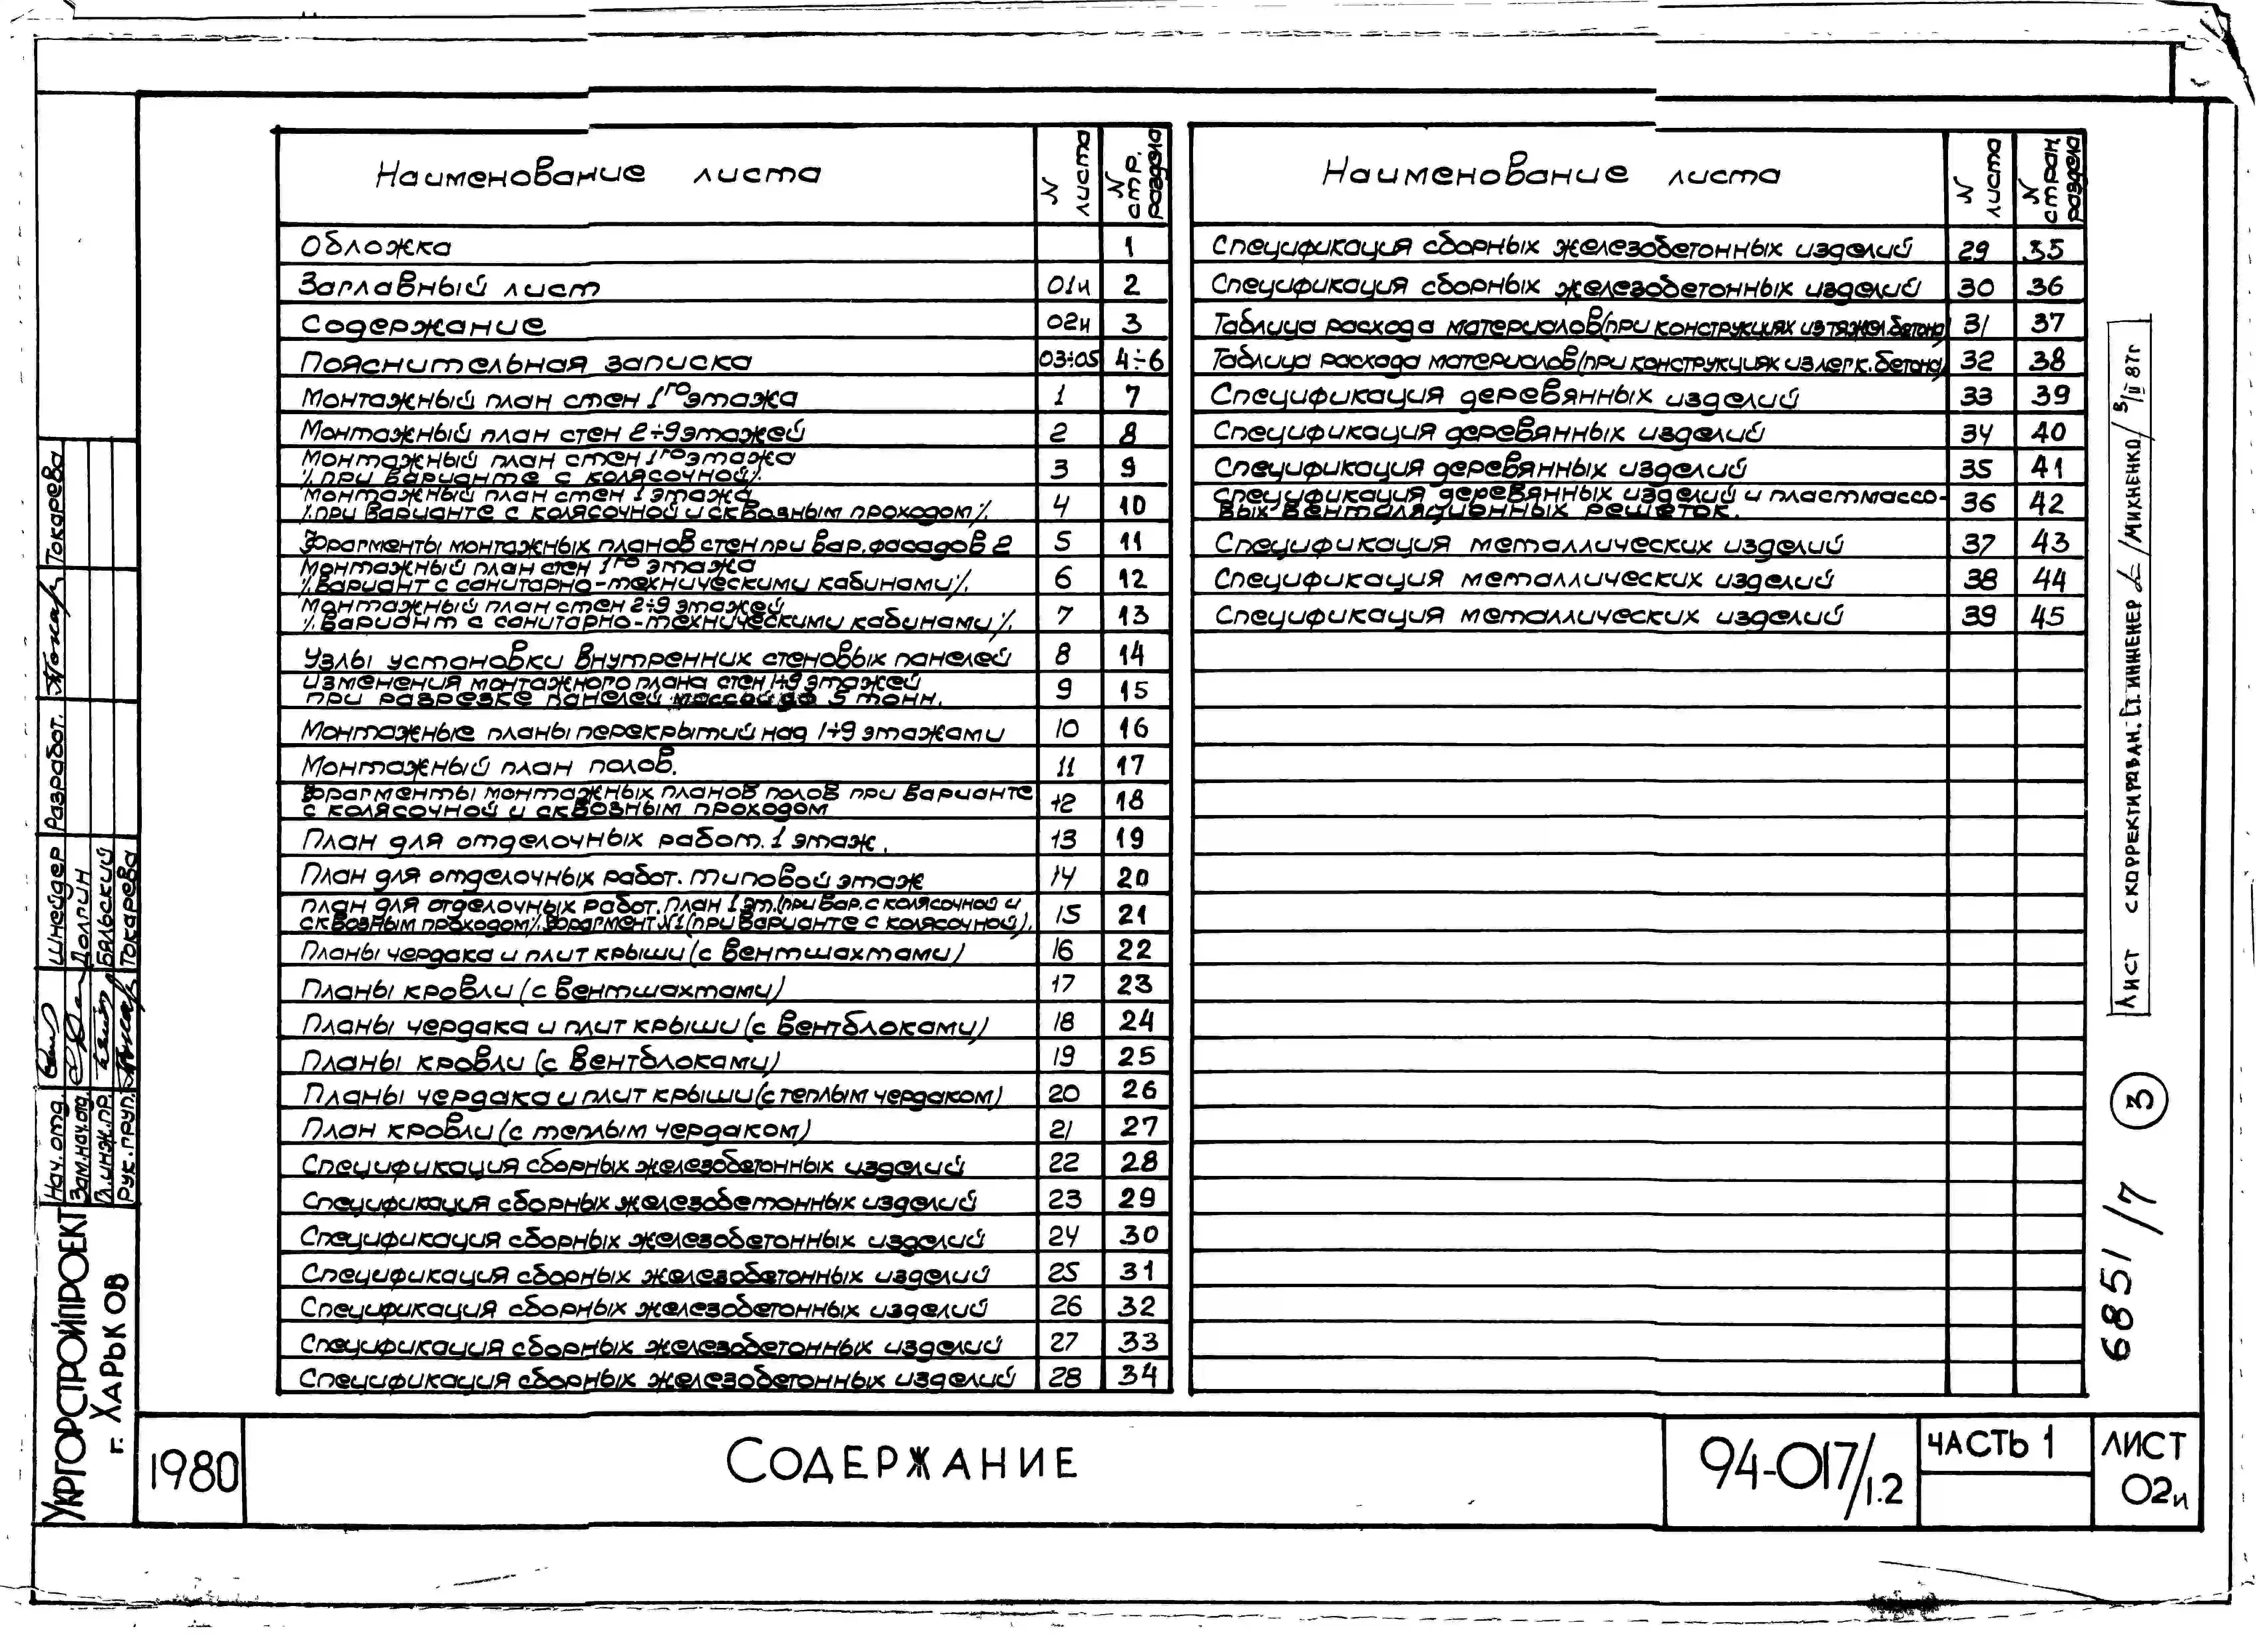 Наименование листа
N листа
N стр. раздела
Обложка 1
Заглавный лист 01и 2
Содержание 02и 3
Пояснительная записка 03÷05 4÷6
Монтажный план стен 1го этажа 1 7
Монтажный план стен 2÷9 этажей 2 8
Монтажный план стен 1го этажа
/.при варианте с колясочной/. 3 9
Монтажный план стен 1 этажа
/.при варианте с колясочной и сквозным проходом/. 4 10
Фрагменты монтажных планов стен при вар. фасадов 2 5 11
Монтажный план стен 1го этажа
/.вариант с санитарно-техническими кабинами/. 6 12
Монтажный план стен 2÷9 этажей
/.вариант с санитарно-техническими кабинами/. 7 13
Узлы установки внутренних стеновых панелей 8 14
Изменения монтажного плана стен 1÷9 этажей
при разрезке панелей массой до 5 тонн. 9 15
Монтажные планы перекрытий над 1÷9 этажами 10 16
Монтажный план полов. 11 17
Фрагменты монтажных планов полов при варианте
с колясочной и сквозным проходом 12 18
План для отделочных работ. 1 этаж. 13 19
План для отделочных работ. типовой этаж 14 20
План для отделочных работ. план 1 эт. (при вар. с колясочной и
сквозным проходом/. Фрагмент N1 (при варианте с колясочной). 15 21
Планы чердака и плит крыши (с вентшахтами) 16 22
Планы кровли (с вентшахтами) 17 23
Планы чердака и плит крыши (с вентблоками) 18 24
Планы кровли (с вентблоками) 19 25
Планы чердака и плит крыши (с теплым чердаком) 20 26
План кровли (с теплым чердаком) 21 27
Спецификация сборных железобетонных изделий 22 28
Спецификация сборных железобетонных изделий 23 29
Спецификация сборных железобетонных изделий 24 30
Спецификация сборных железобетонных изделий 25 31
Спецификация сборных железобетонных изделий 26 32
Спецификация сборных железобетонных изделий 27 33
Спецификация сборных железобетонных изделий 28 34
Наименование листа
N листа
N стран. раздела
Спецификация сборных железобетонных изделий 29 35
Спецификация сборных железобетонных изделий 30 36
Таблица расхода материалов (при конструкциях из тяжел. бетона) 31 37
Таблица расхода материалов (при конструкциях из легк. бетона) 32 38
Спецификация деревянных изделий 33 39
Спецификация деревянных изделий 34 40
Спецификация деревянных изделий 35 41
Спецификация деревянных изделий и пластмассо-
вых вентиляционных решеток. 36 42
Спецификация металлических изделий 37 43
Спецификация металлических изделий 38 44
Спецификация металлических изделий 39 45
Лист скорректирован. Ст. инженер /Михненко/ 3/II 87г
3
6851/7
Разработ. Токарева
Нач. отд. Шнейдер
Зам. нач. отд. Долгин
Гл. инж. пр. Бяльский
Рук. груп. Токарева
Укргорстройпроект
г. Харьков
1980
Содержание
94-017/1.2
Часть 1
Лист
02и